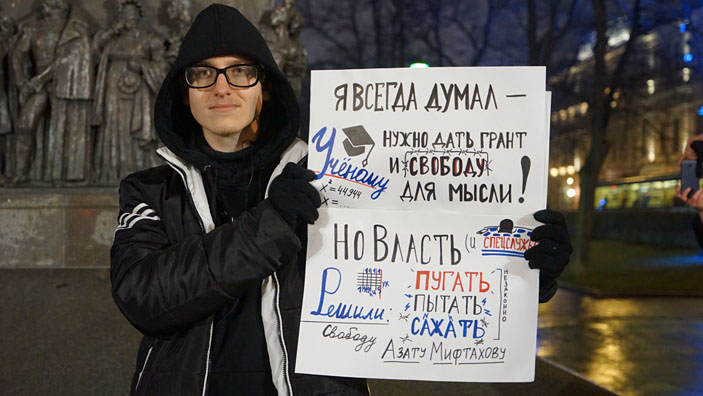 Я ВСЕГДА ДУМАЛ —
Учёному
НУЖНО ДАТЬ ГРАНТ
И СВОБОДУ
ДЛЯ МЫСЛИ!
x² = 44944
x = ...
НО ВЛАСТЬ (и СПЕЦСЛУЖБЫ
Решили:
ПУГАТЬ
ПЫТАТЬ
САЖАТЬ
НЕЗАКОННО
Свободу
АЗАТУ МИФТАХОВУ